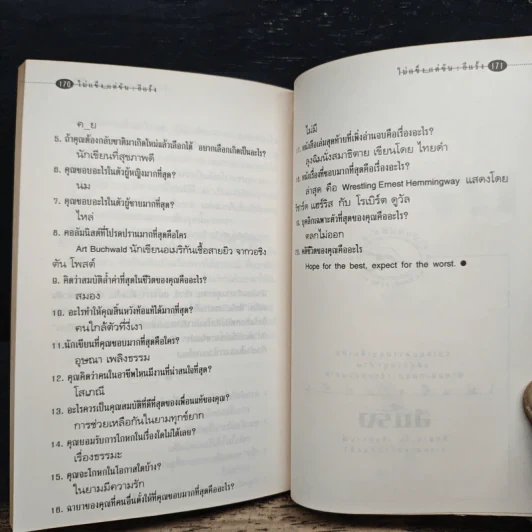 170 ไม่แข็งแต่ขัน : อีแร้ง
ค_ย
5. ถ้าคุณต้องกลับชาติมาเกิดใหม่แล้วเลือกได้ อยากเลือกเกิดเป็นอะไร?
นักเขียนที่สุขภาพดี
6. คุณชอบอะไรในตัวผู้หญิงมากที่สุด?
นม
7. คุณชอบอะไรในตัวผู้ชายมากที่สุด?
ไหล่
8. คอลัมนิสต์ที่โปรดปรานมากที่สุดคือใคร
Art Buchwald นักเขียนอเมริกันเชื้อสายยิว จากวอชิง
ตัน โพสต์
9. คิดว่าสมบัติล้ำค่าที่สุดในชีวิตของคุณคืออะไร?
สมอง
10. อะไรทำให้คุณสิ้นหวังท้อแท้ได้มากที่สุด?
คนใกล้ตัวที่งี่เง่า
11.นักเขียนที่คุณชอบมากที่สุดคือใคร?
อุษณา เพลิงธรรม
12. คุณคิดว่าคนในอาชีพไหนมีงานที่น่าสนใจที่สุด?
โสเภณี
13. อะไรควรเป็นคุณสมบัติที่ดีที่สุดของเพื่อนแท้ของคุณ?
การช่วยเหลือกันในยามทุกข์ยาก
14. คุณยอมรับการโกหกในเรื่องใดไม่ได้เลย?
เรื่องธรรมะ
15. คุณจะโกหกในโอกาสใดบ้าง?
ในยามมีความรัก
16. ฉายาของคุณที่คนอื่นตั้งให้ที่คุณชอบมากที่สุดคืออะไร?
ไม่แข็งแต่ขัน : อีแร้ง 171
ไม่มี
หนังสือเล่มสุดท้ายที่เพิ่งอ่านจบคือเรื่องอะไร?
ลุงฉิมนั่งสมาธิตาย เขียนโดย ไทยดำ
หนังเรื่องที่ชอบมากที่สุดคือเรื่องอะไร?
ล่าสุด คือ Wrestling Ernest Hemmingway แสดงโดย
ริชาร์ด แฮร์ริส กับ โรเบิร์ต ดูวัล
บุคลิกเฉพาะตัวที่สุดของคุณคืออะไร?
ตลกไม่ออก
คติชีวิตของคุณคืออะไร
Hope for the best, expect for the worst. ●